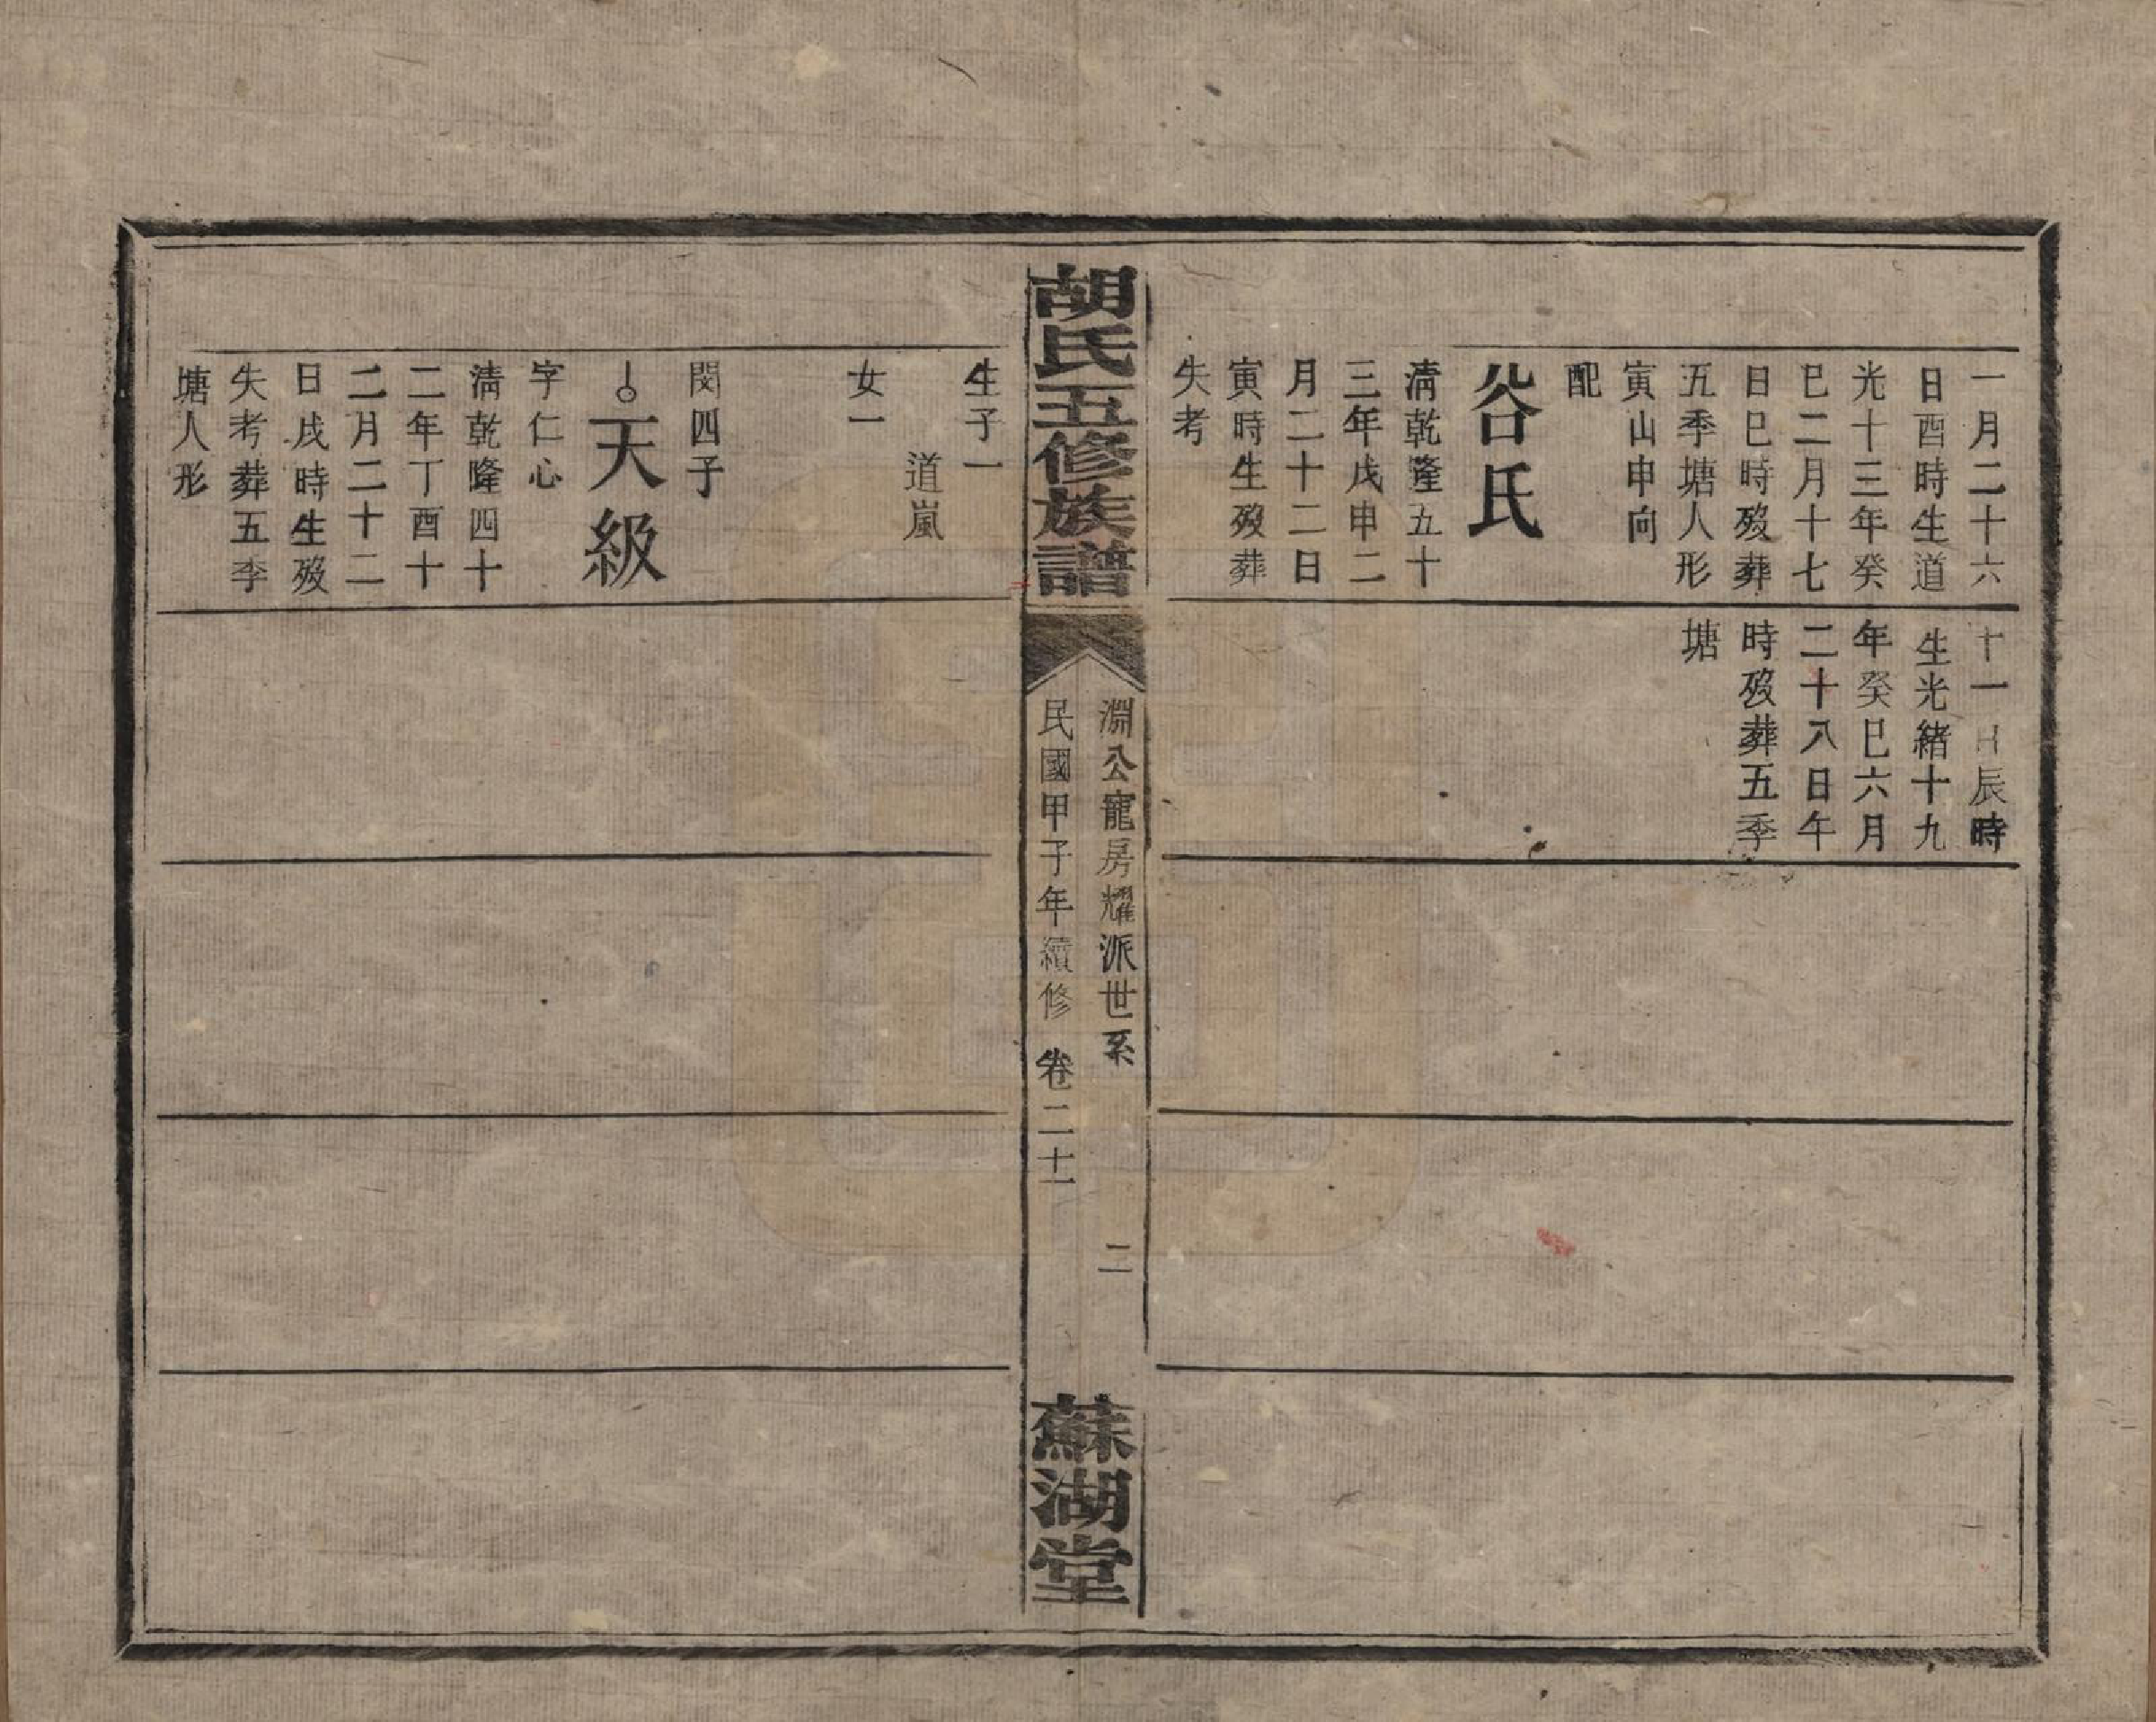 一月二十六
日酉時生道
光十三年癸
巳二月十七
日巳時歿葬
五季塘人形
寅山申向
配
谷氏
清乾隆五十
三年戊申二
月二十二日
寅時生歿葬
失考
十一日辰時
生光緒十九
年癸巳六月
二十八日午
時歿葬五季
塘
胡氏五修族譜
淵公寵房耀派世系
二
民國甲子年續修 卷二十一
蘇湖堂
生子一
道嵐
女一
閔四子
天級
字仁心
清乾隆四十
二年丁酉十
二月二十二
日戌時生歿
失考葬五季
塘人形